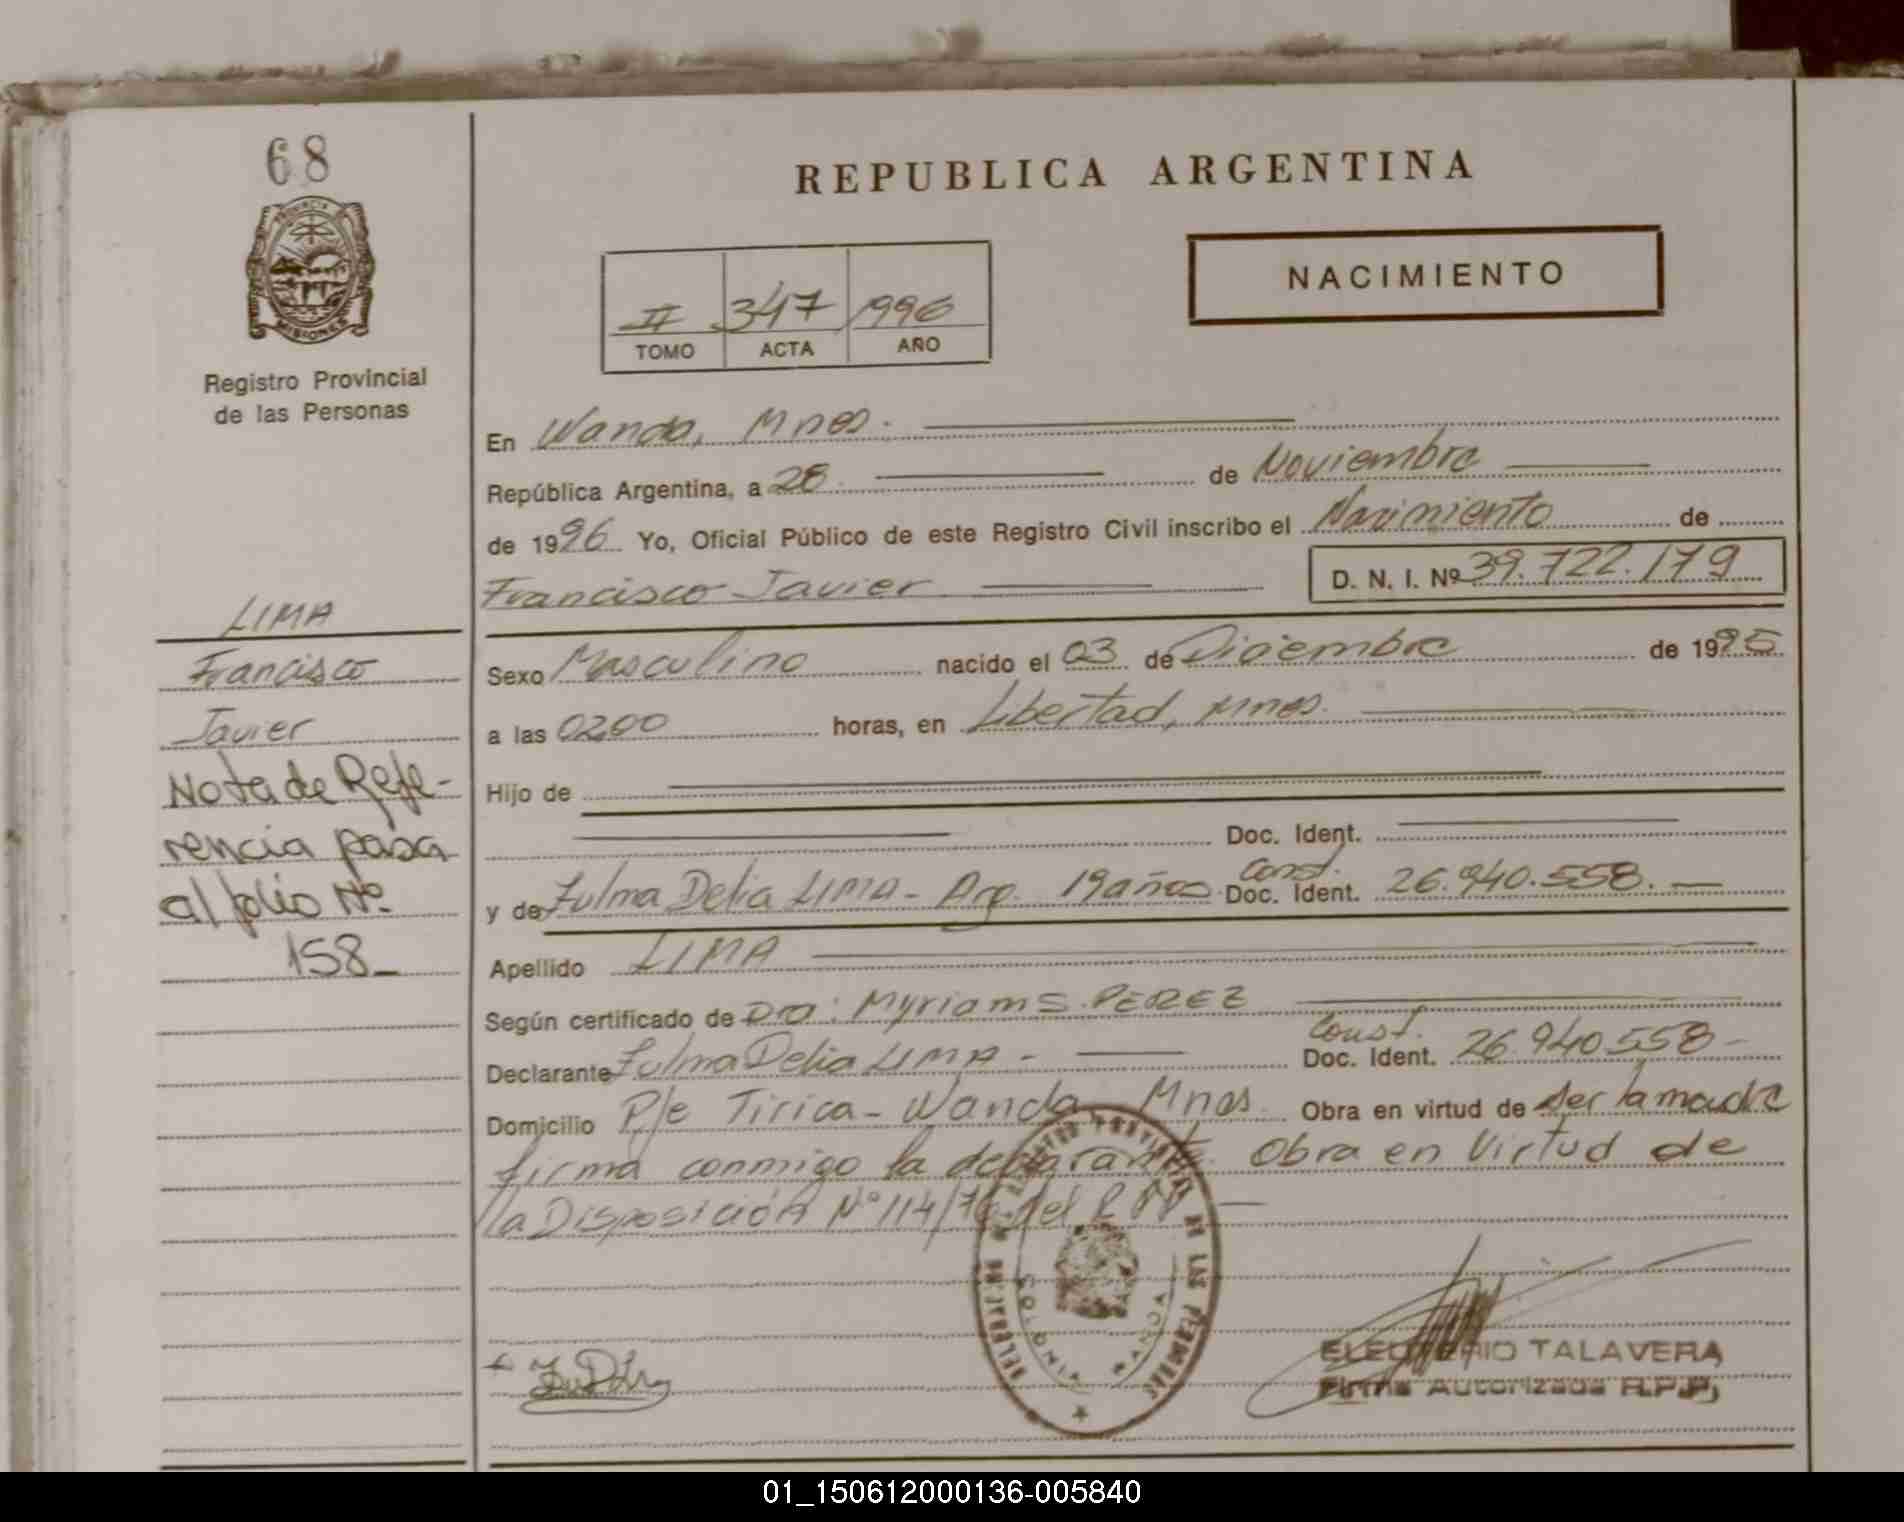 68
PROVINCIA DE
MISIONES
Registro Provincial
de las Personas
REPUBLICA ARGENTINA
NACIMIENTO
II 347 1996
TOMO ACTA AÑO
En Wanda, Mnes.
República Argentina, a 28 de Noviembre
de 1996 Yo, Oficial Público de este Registro Civil inscribo el Nacimiento de
Francisco Javier D. N. I. Nº 39.722.179
Sexo Masculino nacido el 03 de Diciembre de 1995
a las 02,00 horas, en Libertad, Mnes.
Hijo de
Doc. Ident.
y de Zulma Delia LIMA - Arg. 19 años. Const. Doc. Ident. 26.940.558.
Apellido LIMA
Según certificado de Dra: Myriam S. PEREZ
Declarante Zulma Delia LIMA - Const. Doc. Ident. 26.940.558 -
Domicilio P/e Tirica - Wanda Mnes. Obra en virtud de ser la madre
firma conmigo la declarante. Obra en Virtud de
la Disposición Nº 114/76 del R.P.P.
LIMA
Francisco
Javier
Nota de Refe-
rencia pasa
al folio Nº
158_
DE LAS PERSONAS
COLONIA WANDA
ELEUTERIO TALAVERA
Firma Autorizada R.P.P.
01_150612000136-005840